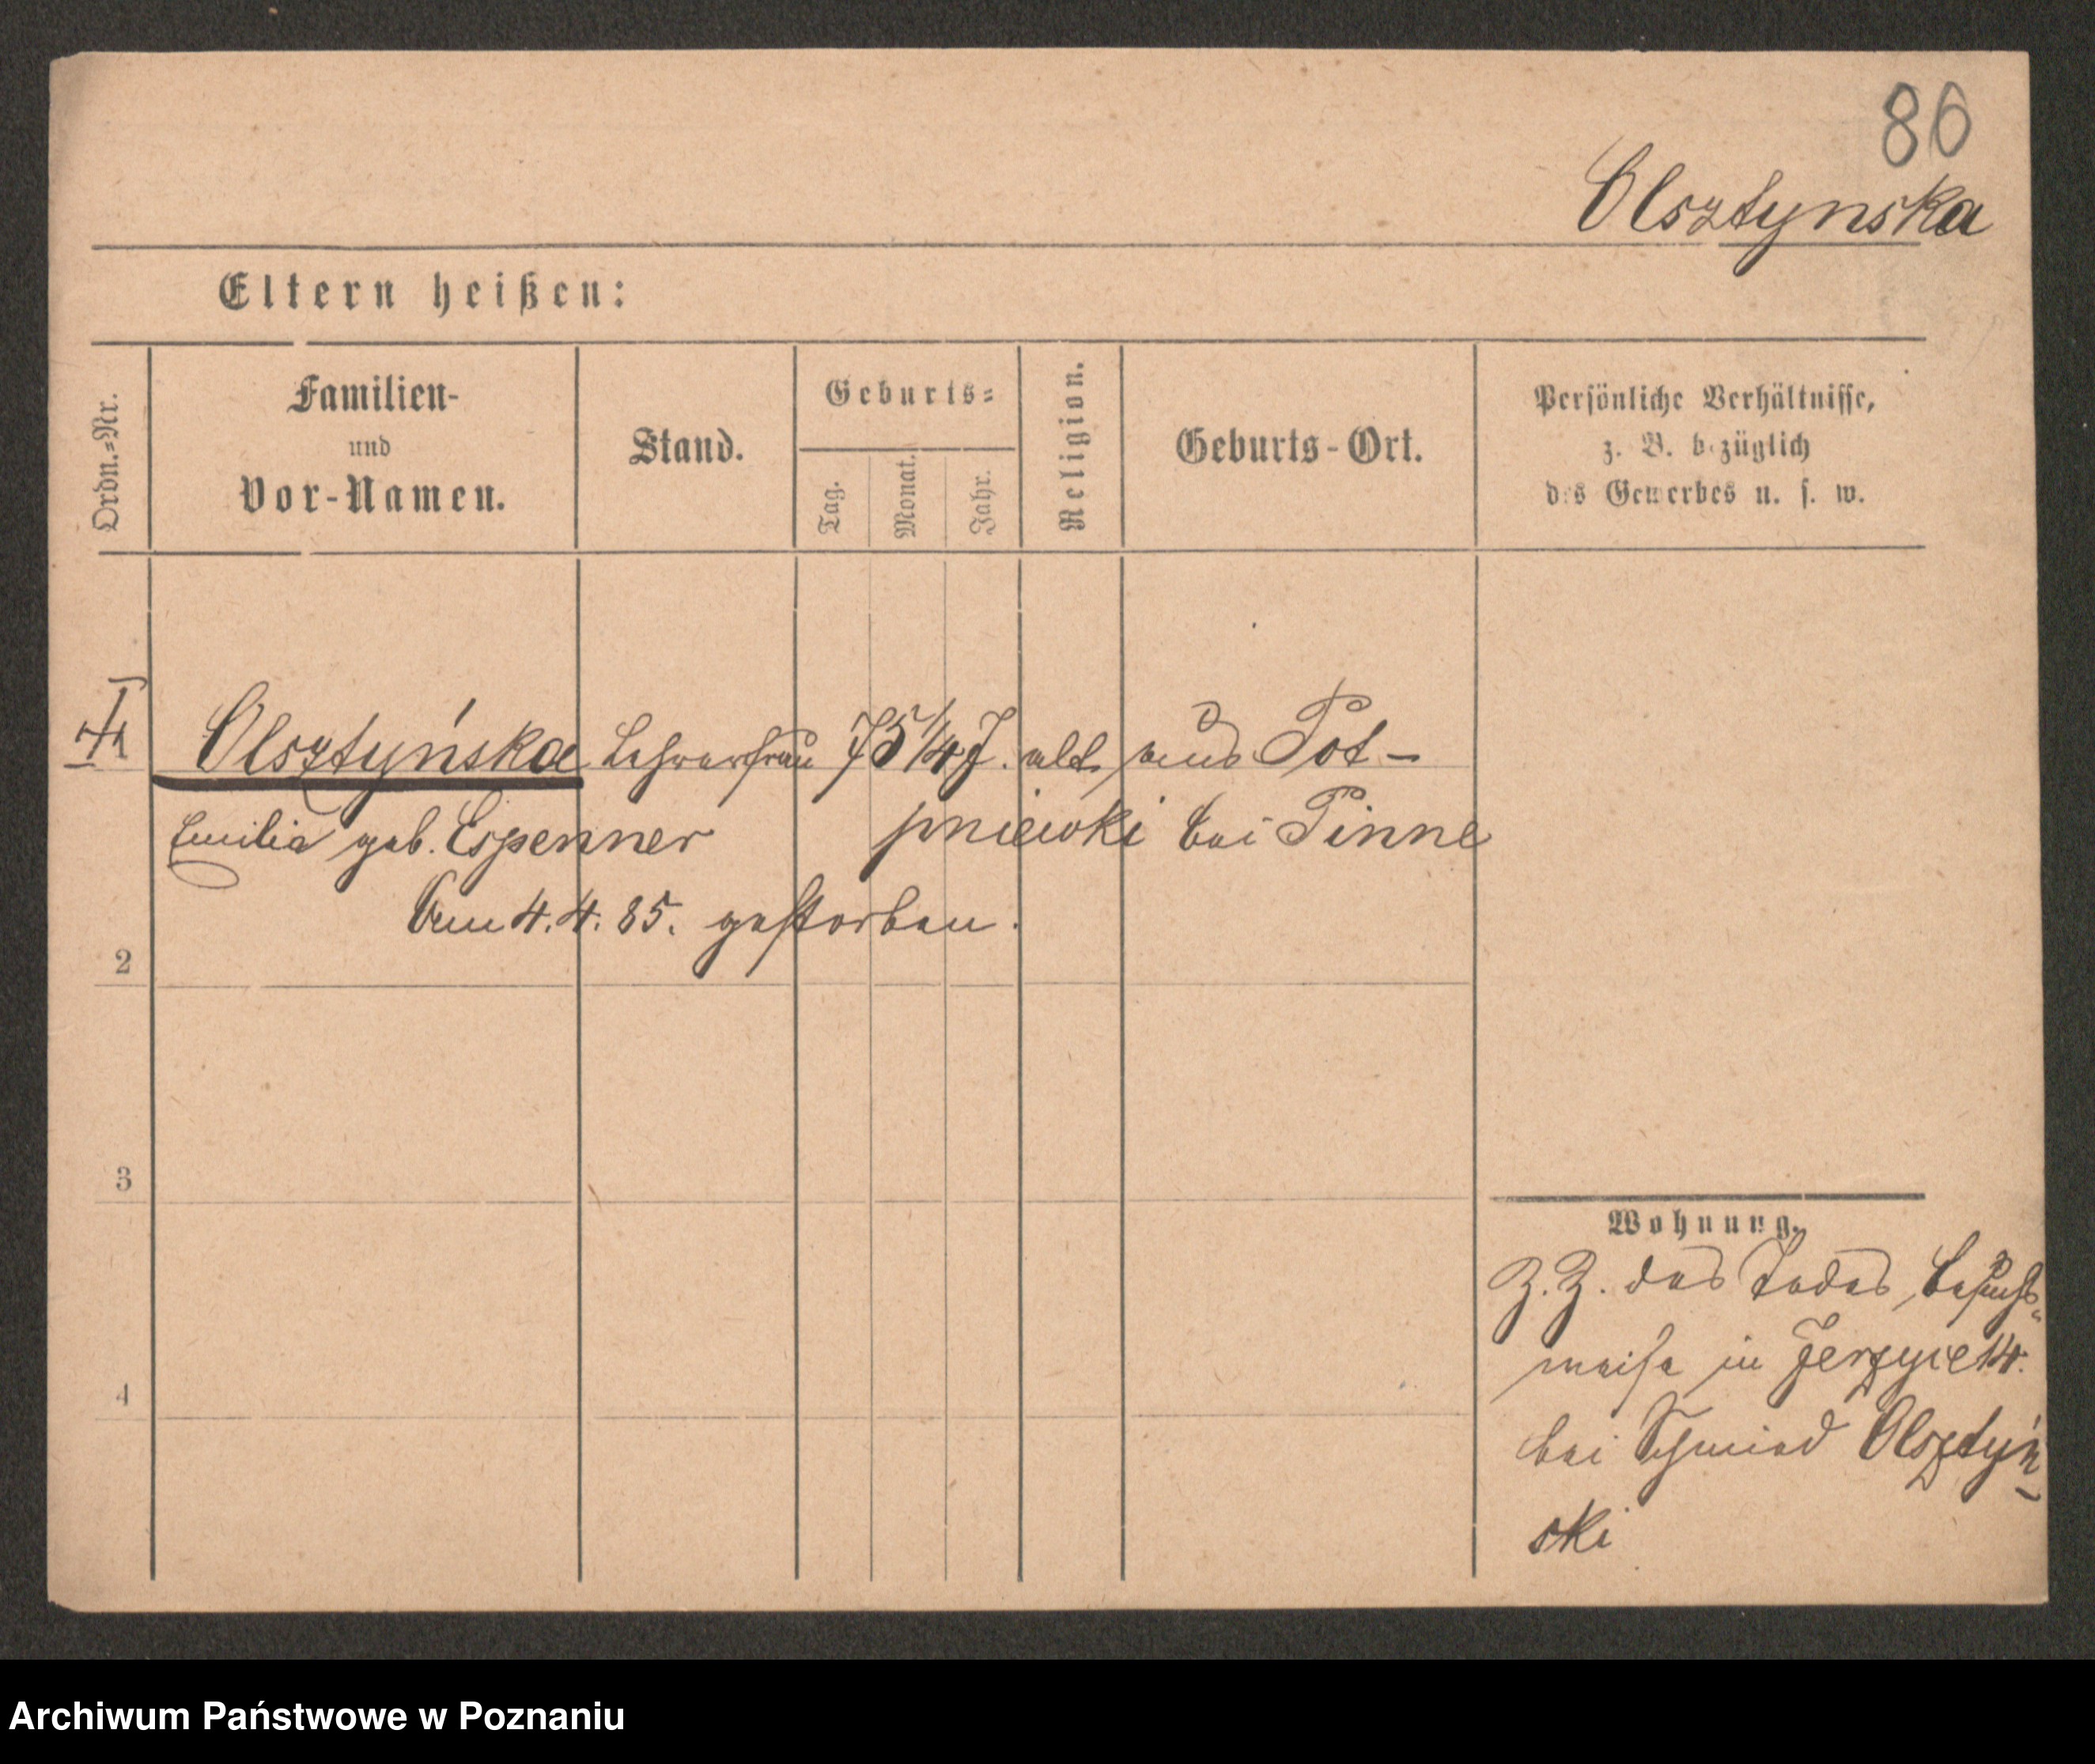 86
Olsztynska
Eltern heißen:
Ordn.-Nr.
Familien-
und
Vor-Namen.
Stand.
Geburts-
Tag.
Monat.
Jahr.
Religion.
Geburts-Ort.
Persönliche Verhältnisse,
z. B. bezüglich
des Gewerbes u. s. w.
Olsztyńska Lehrerfrau 75 1/4 J. alt aus Pot-
Emilie geb. Espenner pniewki bei Pinne
Am 4.4.85. gestorben.
2
3
4
Wohnung.
Z. Z. des Todes, besuchs-
weise in Jerzyce 14.
bei Schmied Olsztyń-
ski
Archiwum Państwowe w Poznaniu